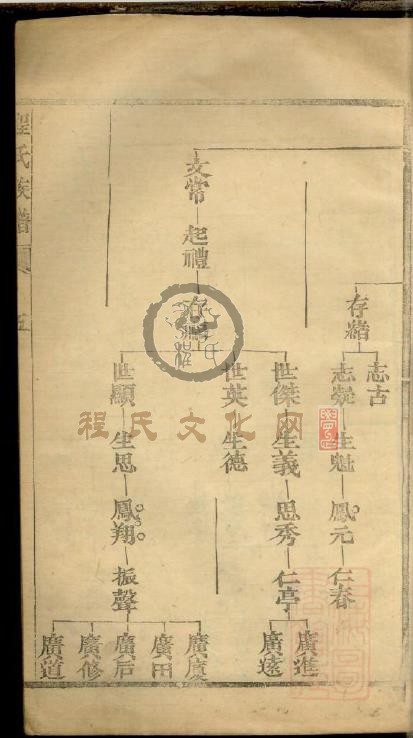 程氏族譜
五
存緒
志古
志凝 生魁 鳳元 仁春
文常 起禮
世傑 生義 思秀 仁亭
廣進
廣遠
世英 生德
世顯 生思 鳳翔 振聲
廣廈
廣田
廣后
廣修
廣道
程氏文化网